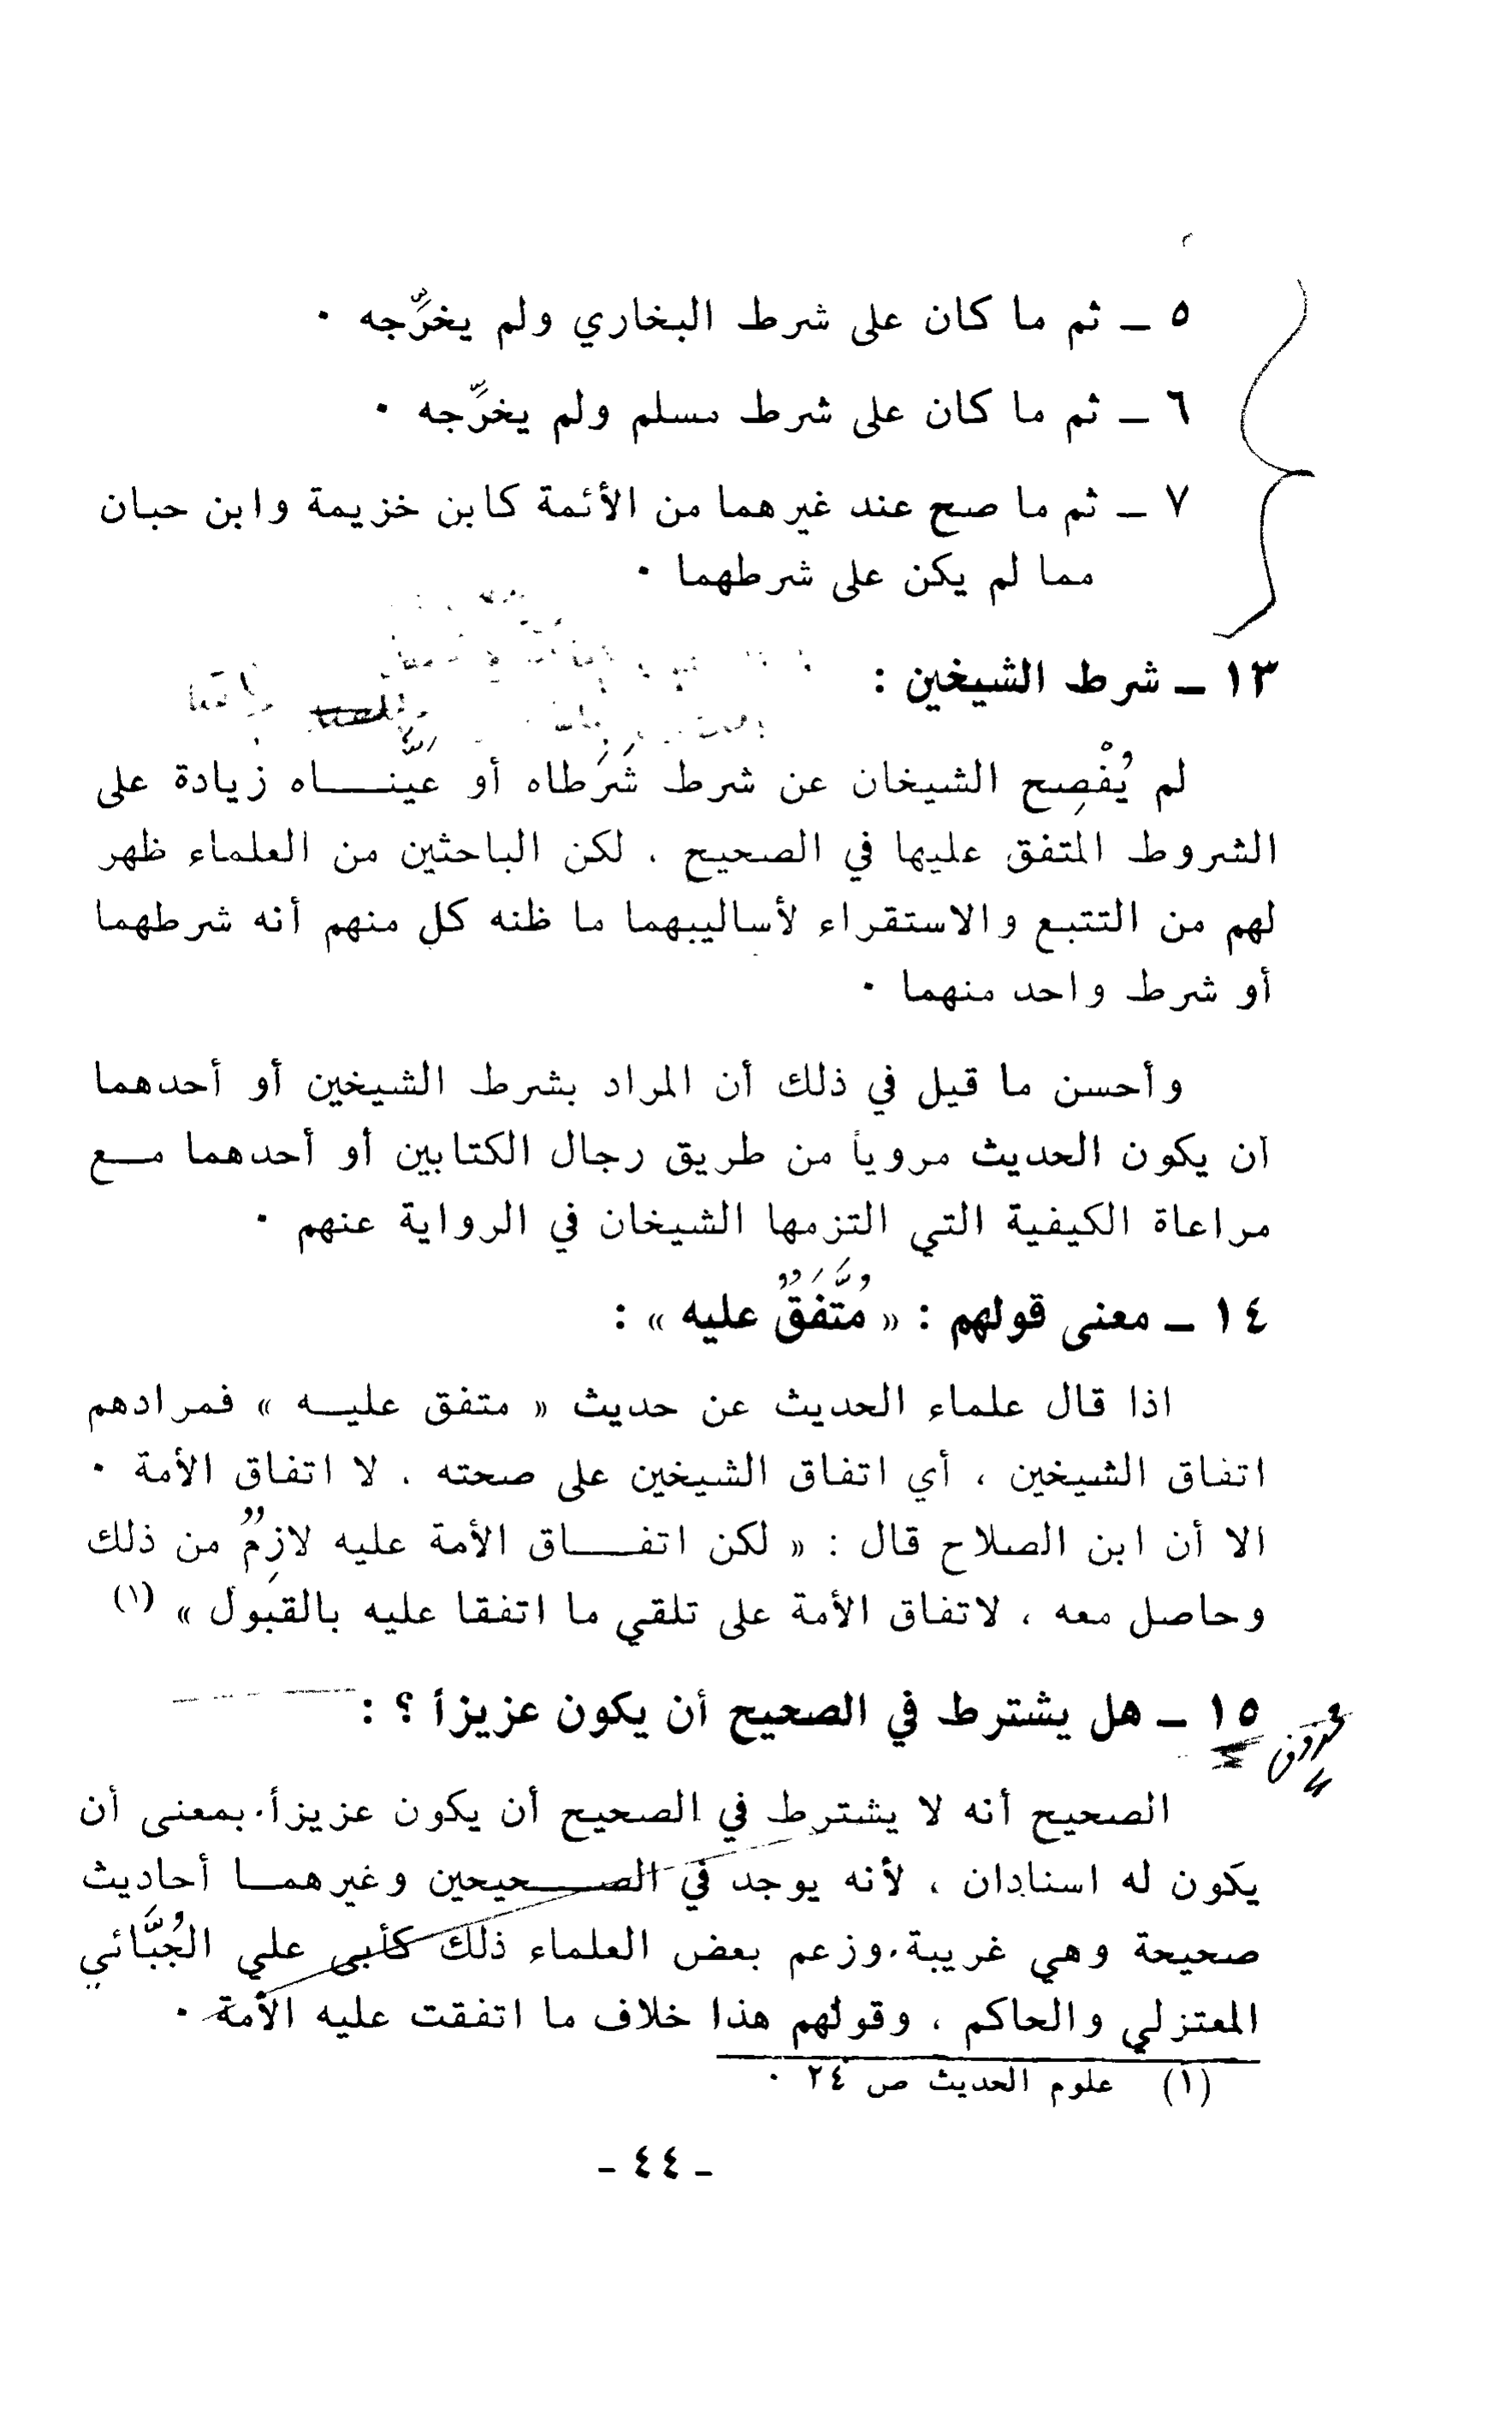 ٥ ــ ثم ما كان على شرط البخاري ولم يخرِّجه ٠
٦ ــ ثم ما كان على شرط مسلم ولم يخرِّجه ٠
٧ ــ ثم ما صح عند غيرهما من الأئمة كابن خزيمة وابن حبان
مما لم يكن على شرطهما ٠
١٣ ــ شرط الشيخين :
لم يُفْصِح الشيخان عن شرط شَرَطاه أو عيَّنـــاه زيادة على
الشروط المتفق عليها في الصحيح ، لكن الباحثين من العلماء ظهر
لهم من التتبع والاستقراء لأساليبهما ما ظنه كل منهم أنه شرطهما
أو شرط واحد منهما ٠
وأحسن ما قيل في ذلك أن المراد بشرط الشيخين أو أحدهما
أن يكون الحديث مروياً من طريق رجال الكتابين أو أحدهما مــع
مراعاة الكيفية التي التزمها الشيخان في الرواية عنهم ٠
١٤ ــ معنى قولهم : « مُتَّفَقٌ عليه » :
اذا قال علماء الحديث عن حديث « متفق عليــه » فمرادهم
اتفاق الشيخين ، أي اتفاق الشيخين على صحته ، لا اتفاق الأمة ٠
الا أن ابن الصلاح قال : « لكن اتفـــاق الأمة عليه لازِمٌ من ذلك
وحاصل معه ، لاتفاق الأمة على تلقي ما اتفقا عليه بالقَبول » (١)
١٥ ــ هل يشترط في الصحيح أن يكون عزيزاً ؟ :
الصحيح أنه لا يشترط في الصحيح أن يكون عزيزاً، بمعنى أن
يكون له اسنادان ، لأنه يوجد في الصــحيحين وغيرهمــا أحاديث
صحيحة وهي غريبة، وزعم بعض العلماء ذلك كأبي علي الجُبَّائي
المعتزلي والحاكم ، وقولهم هذا خلاف ما اتفقت عليه الأمة ٠
(١) علوم الحديث ص ٢٤ ٠
- ٤٤ -